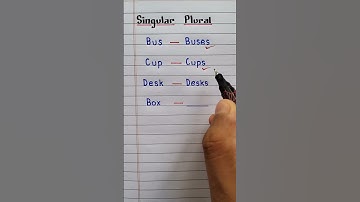 Singular Plural
Bus — Buses
Cup — Cups
Desk — Desks
Box —